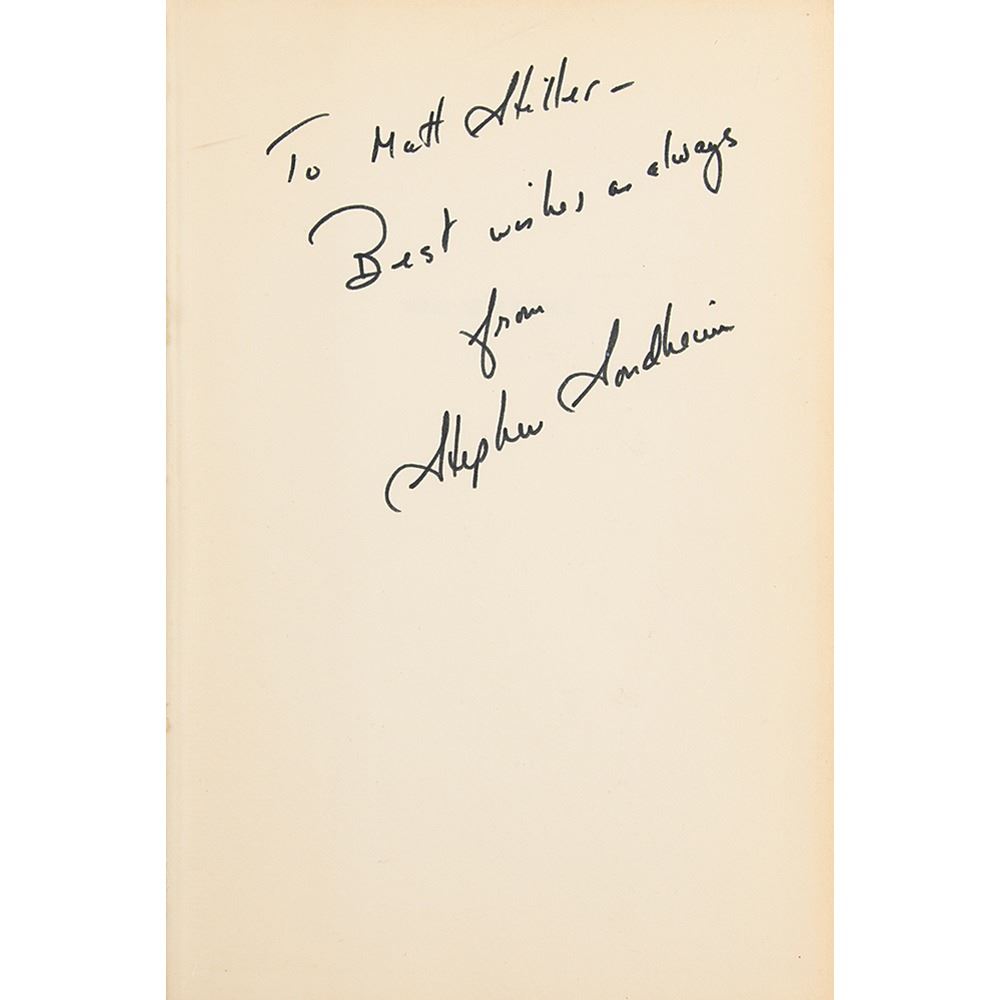 To Matt Stiller –
Best wishes as always
from
Stephen Sondheim